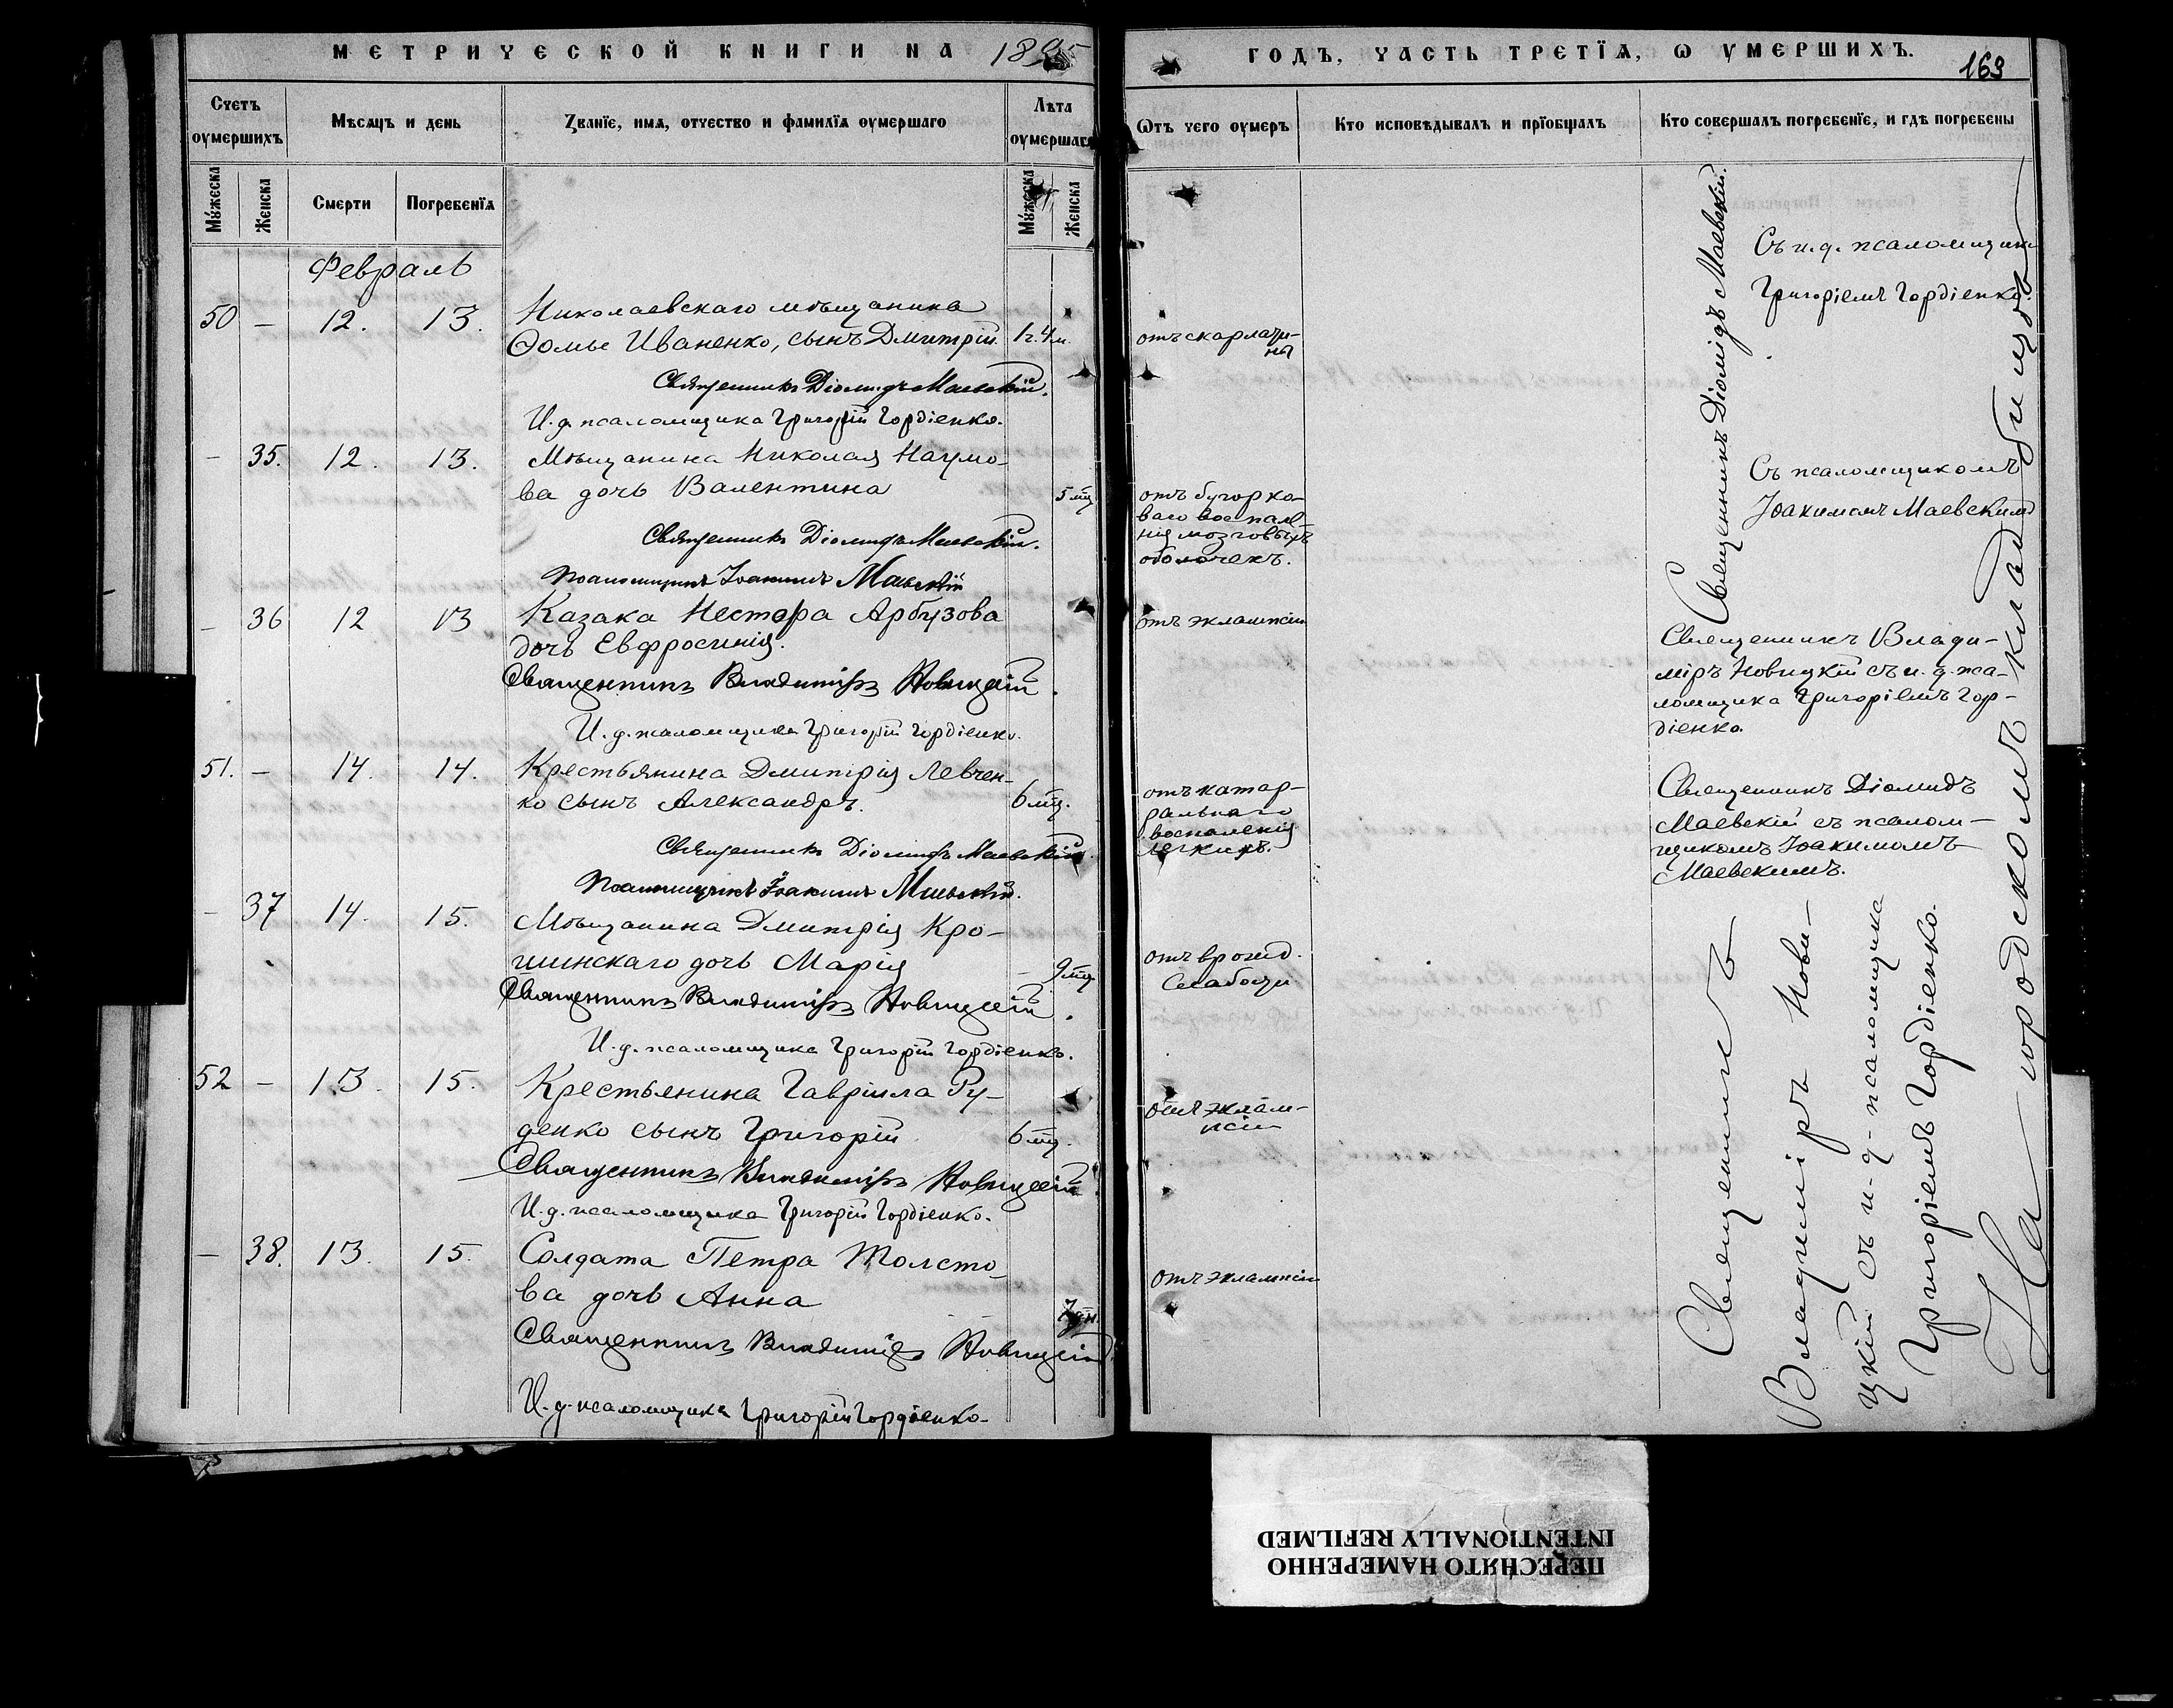 МЕТРИЧЕСКОЙ КНИГИ НА 1895
Счетъ оумершихъ
Мѣсяцъ и день
Званїе, имя, отчество и фамилїя оумершаго
Лѣта оумершаго
Мужеска
Женска
Смерти
Погребенїя
Мужеска
Женска
Февраль
50 — 12. 13. Николаевскаго мѣщанина
Ѳомы Иваненко, сынъ Дмитрій 1г. 4м.
Священникъ Діомидъ Маевскій.
И. д. псаломщика Григорій Гордіенко.
— 35. 12. 13. Мѣщанина Николая Наумо-
ва дочь Валентина 5 мц.
Священникъ Діомидъ Маевскій.
Псаломщикъ Іоакимъ Маевскій
— 36 12 13 Казака Нестора Арбузова
дочь Евфросинія.
Священникъ Владиміръ Новицкій.
И. д. псаломщика Григорій Гордіенко.
51. — 14. 14. Крестьянина Дмитрія Левчен-
ко сынъ Александръ. 6 мц.
Священникъ Діомидъ Маевскій.
Псаломщикъ Іоакимъ Маевскій.
— 37 14. 15. Мѣщанина Дмитрія Кро-
шинскаго дочь Марія — 9 мц
Священникъ Владиміръ Новицкій.
И. д. псаломщика Григорій Гордіенко.
52 — 13. 15. Крестьянина Гавріила Ру-
денко сынъ Григорій 6 мц.
Священникъ Владиміръ Новицкій.
И. д. псаломщика Григорій Гордіенко.
— 38. 13. 15. Солдата Петра Толсто-
ва дочь Анна 7 дн.
Священникъ Владиміръ Новицкій
И. д. псаломщика Григорій Гордіенко.
ГОДЪ, ЧАСТЬ ТРЕТЇЯ, Ѡ УМЕРШИХЪ.
169
Ѡтъ чего оумеръ
Кто исповѣдывалъ и прїобщалъ
Кто совершалъ погребенїе, и гдѣ погребены
отъ скарлати-
ны
отъ бугорко-
ваго воспале-
нія мозговыхъ
оболочекъ.
отъ эклампсіи
отъ катар-
ральнаго
воспаленія
легкихъ.
отъ врожд.
слабости
отъ эклам-
псіи
отъ эклампсіи
Священникъ Діомидъ Маевскій.
Съ и. д. псаломщика
Григоріемъ Гордіенко.
Съ псаломщикомъ
Іоакимомъ Маевскимъ
Священникъ Влади-
міръ Новицкій съ и. д. пса-
ломщика Григоріемъ Гор-
діенко.
Священникъ Діомидъ
Маевскій съ псалом-
щикомъ Іоакимомъ
Маевскимъ.
Священникъ
Владиміръ Нови-
цкій съ и. д. псаломщика
Григоріемъ Гордіенко.
На городскомъ кладбищѣ
ПЕРЕСНЯТО НАМЕРЕННО
INTENTIONALLY REFILMED